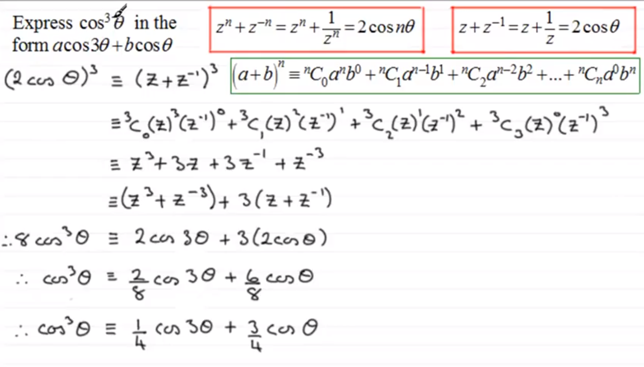 Express cos³θ in the
form acos3θ+bcosθ
zⁿ + z⁻ⁿ = zⁿ + 1/zⁿ = 2cos nθ
z + z⁻¹ = z + 1/z = 2cosθ
(2cos θ)³ ≡ (z + z⁻¹)³
(a+b)ⁿ ≡ ⁿC₀aⁿb⁰ + ⁿC₁aⁿ⁻¹b¹ + ⁿC₂aⁿ⁻²b² + ... + ⁿCₙa⁰bⁿ
≡ ³C₀(z)³(z⁻¹)⁰ + ³C₁(z)²(z⁻¹)¹ + ³C₂(z)¹(z⁻¹)² + ³C₃(z)⁰(z⁻¹)³
≡ z³ + 3z + 3z⁻¹ + z⁻³
≡ (z³ + z⁻³) + 3(z + z⁻¹)
∴ 8cos³θ ≡ 2cos 3θ + 3(2cosθ)
∴ cos³θ ≡ 2/8 cos 3θ + 6/8 cos θ
∴ cos³θ ≡ 1/4 cos 3θ + 3/4 cos θ